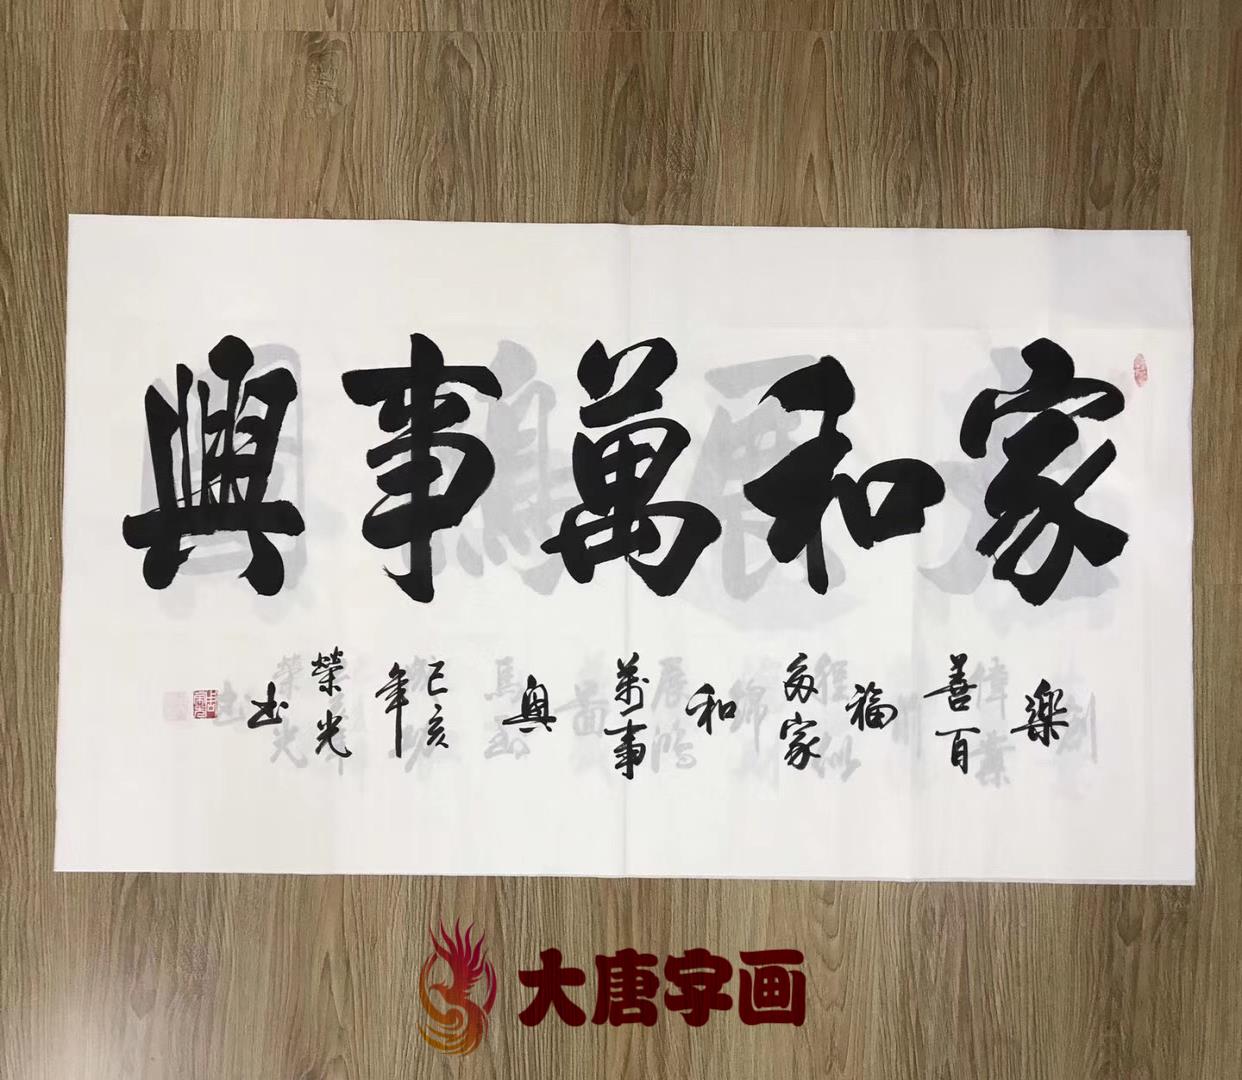 家和萬事興
樂善百福多家和萬事興己亥年榮光书
大唐字画